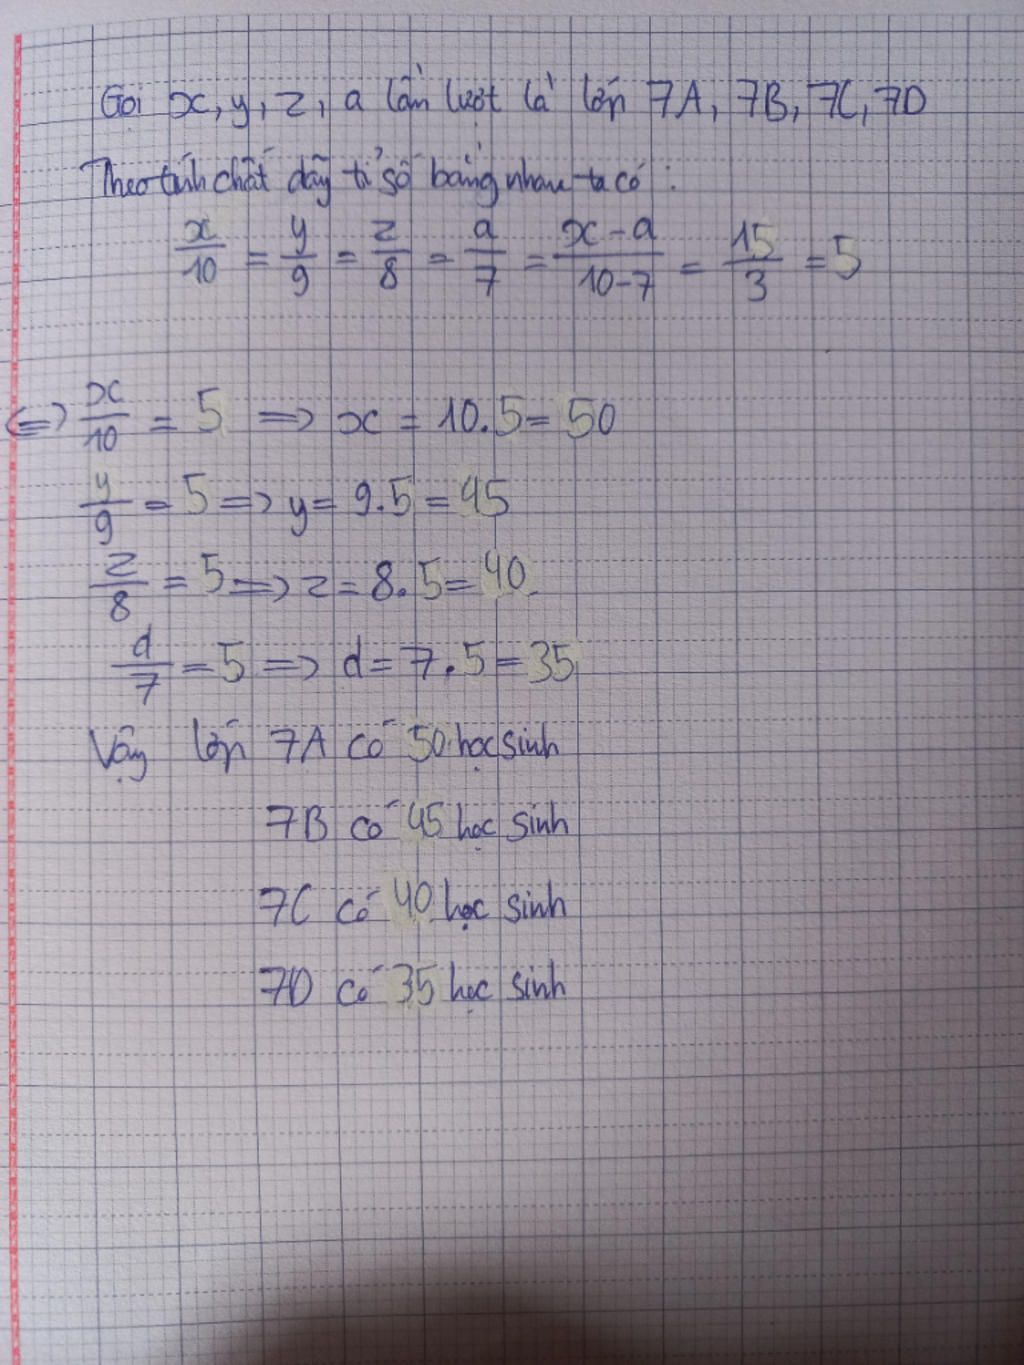 Gọi x, y, z, a lần lượt là lớp 7A, 7B, 7C, 7D
Theo tính chất dãy tỉ số bằng nhau ta có :
x/10 = y/9 = z/8 = a/7 = x-a/10-7 = 15/3 = 5
<=> x/10 = 5 => x = 10.5 = 50
y/9 = 5 => y = 9.5 = 45
z/8 = 5 => z = 8.5 = 40
d/7 = 5 => d = 7.5 = 35
Vậy lớp 7A có 50 học sinh
7B có 45 học sinh
7C có 40 học sinh
7D có 35 học sinh